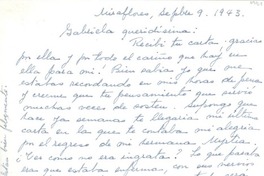 Miraflores, Sepbre 9. 1943.
Gabriela queridísima:
Recibí tu carta, gracias
por ellas y por todo el cariño que hay en
ella para mí. Bien sabía yo que me
estabas recordando en mis horas de pena
y creeme que tu pensamiento que me
muchas veces de sostén. Supongo que
hace ya semanas te llegaría mi última
carta en la que te contaba mi alegría
por el regreso de mi hermana.
¿Ves como no era ingrata? Lo que pasaba
era que estaba enferma, con sus